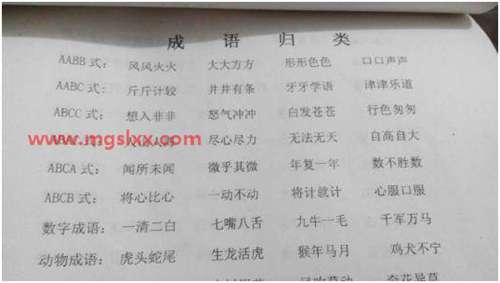 成语归类
AABB式： 风风火火 大大方方 形形色色 口口声声
AABC式： 斤斤计较 井井有条 牙牙学语 津津乐道
ABCC式： 想入非非 怒气冲冲 白发苍苍 行色匆匆
www.mgskxx.com
尽心尽力 无法无天 自高自大
ABCA式： 闻所未闻 微乎其微 年复一年 数不胜数
ABCB式： 将心比心 一动不动 将计就计 心服口服
数字成语： 一清二白 七嘴八舌 九牛一毛 千军万马
动物成语： 虎头蛇尾 生龙活虎 猴年马月 鸡犬不宁